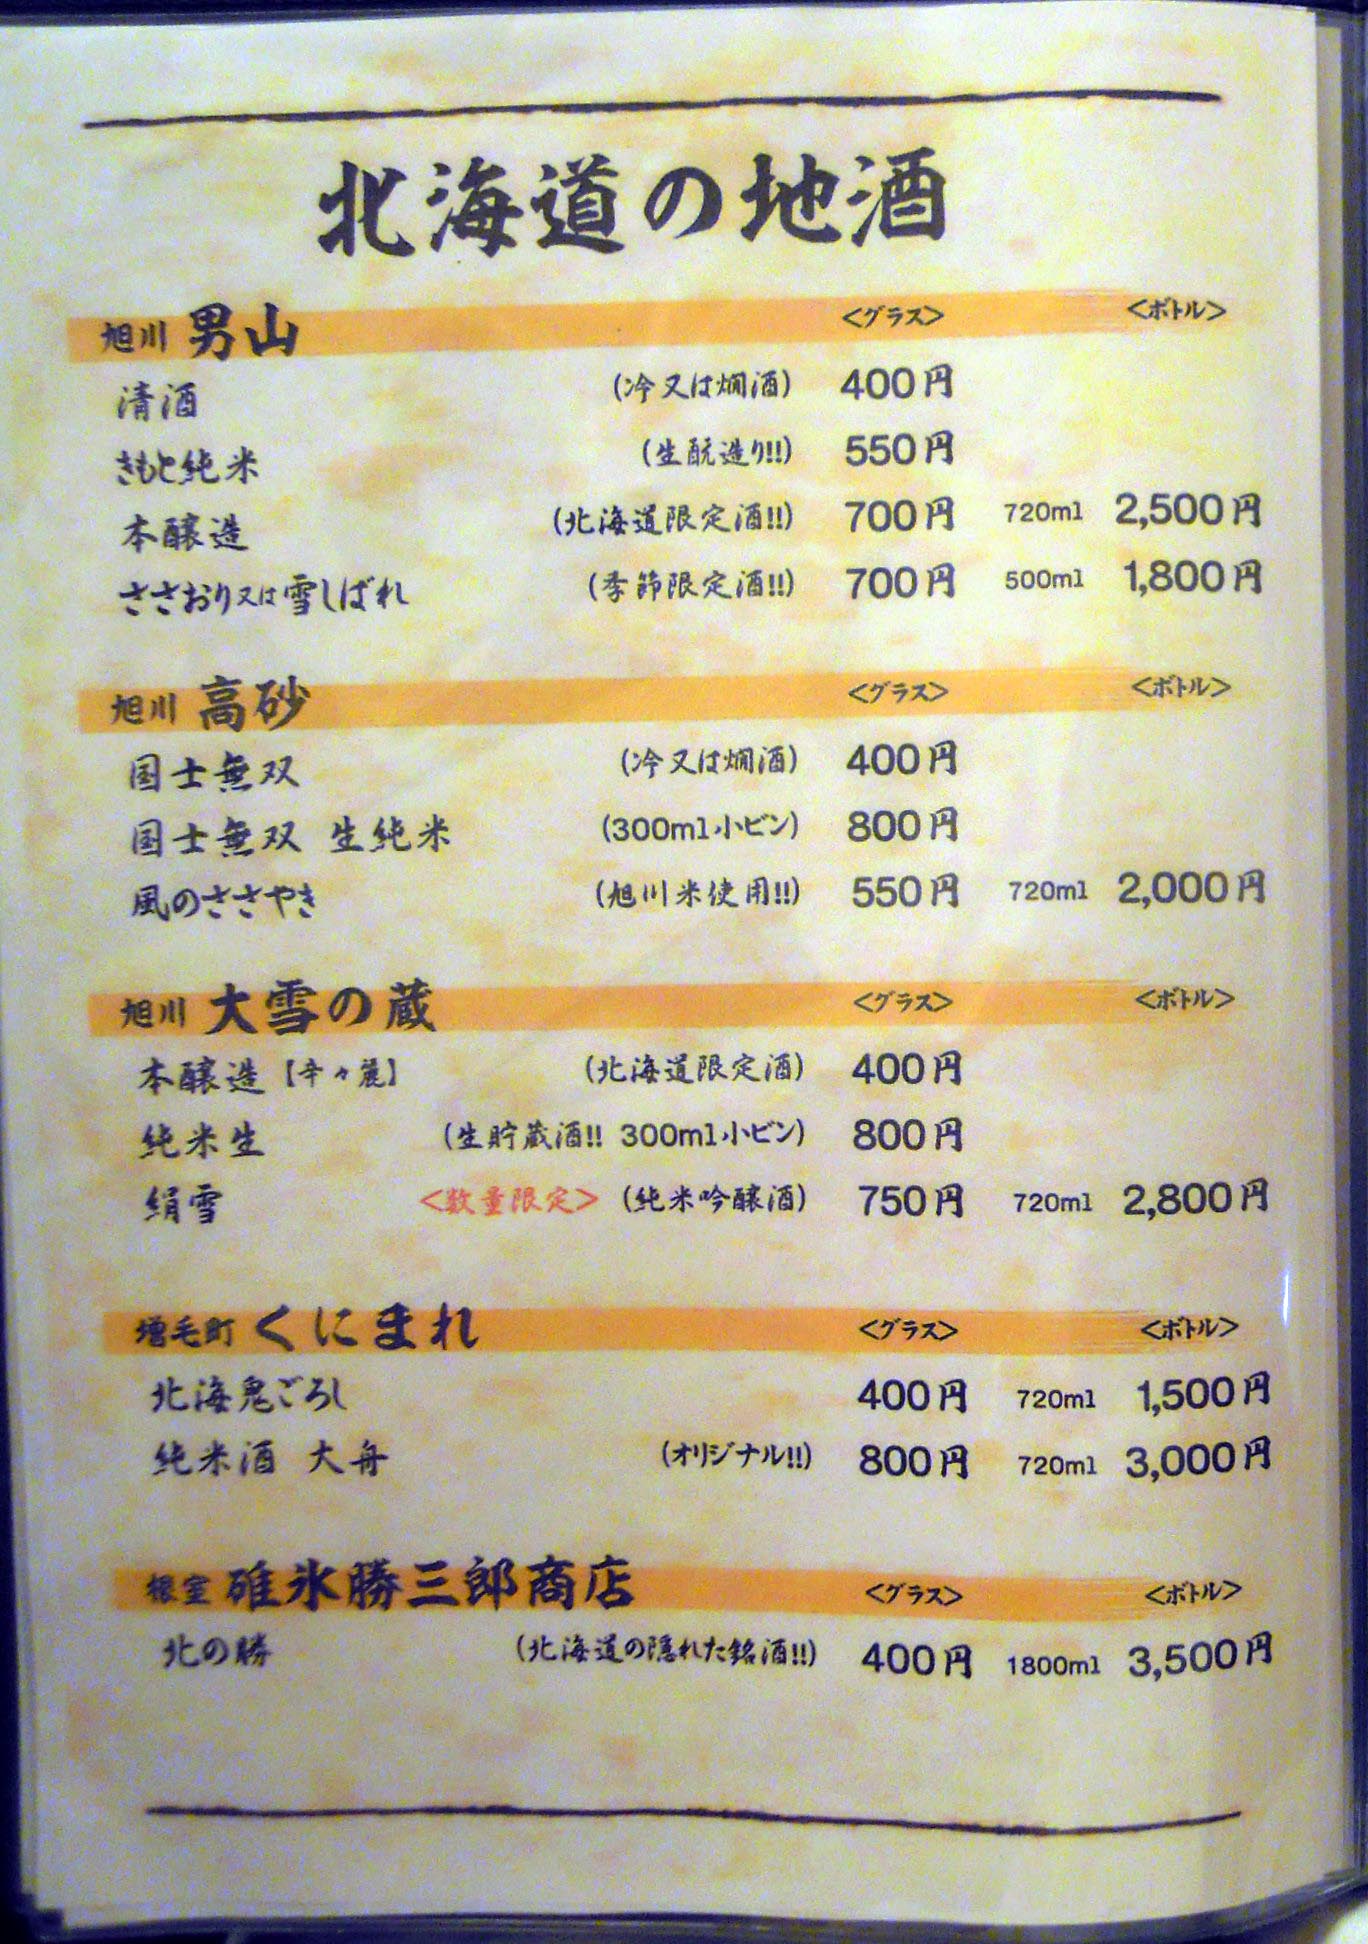 北海道の地酒
旭川 男山 <グラス> <ボトル>
清酒 (冷又は燗酒) 400円
きもと純米 (生酛造り!!) 550円
本醸造 (北海道限定酒!!) 700円 720ml 2,500円
ささおり又は雪しばれ (季節限定酒!!) 700円 500ml 1,800円
旭川 高砂 <グラス> <ボトル>
国士無双 (冷又は燗酒) 400円
国士無双 生純米 (300ml小ビン) 800円
風のささやき (旭川米使用!!) 550円 720ml 2,000円
旭川 大雪の蔵 <グラス> <ボトル>
本醸造【辛々麗】 (北海道限定酒) 400円
純米生 (生貯蔵酒!! 300ml小ビン) 800円
絹雪 <数量限定> (純米吟醸酒) 750円 720ml 2,800円
増毛町 くにまれ <グラス> <ボトル>
北海鬼ごろし 400円 720ml 1,500円
純米酒 大舟 (オリジナル!!) 800円 720ml 3,000円
根室 碓氷勝三郎商店 <グラス> <ボトル>
北の勝 (北海道の隠れた銘酒!!) 400円 1800ml 3,500円